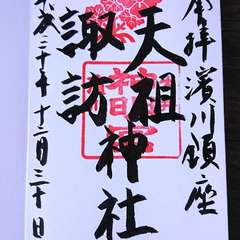 奉拝 濱川鎮座
天祖神社
諏訪
平成三十年十二月三十日